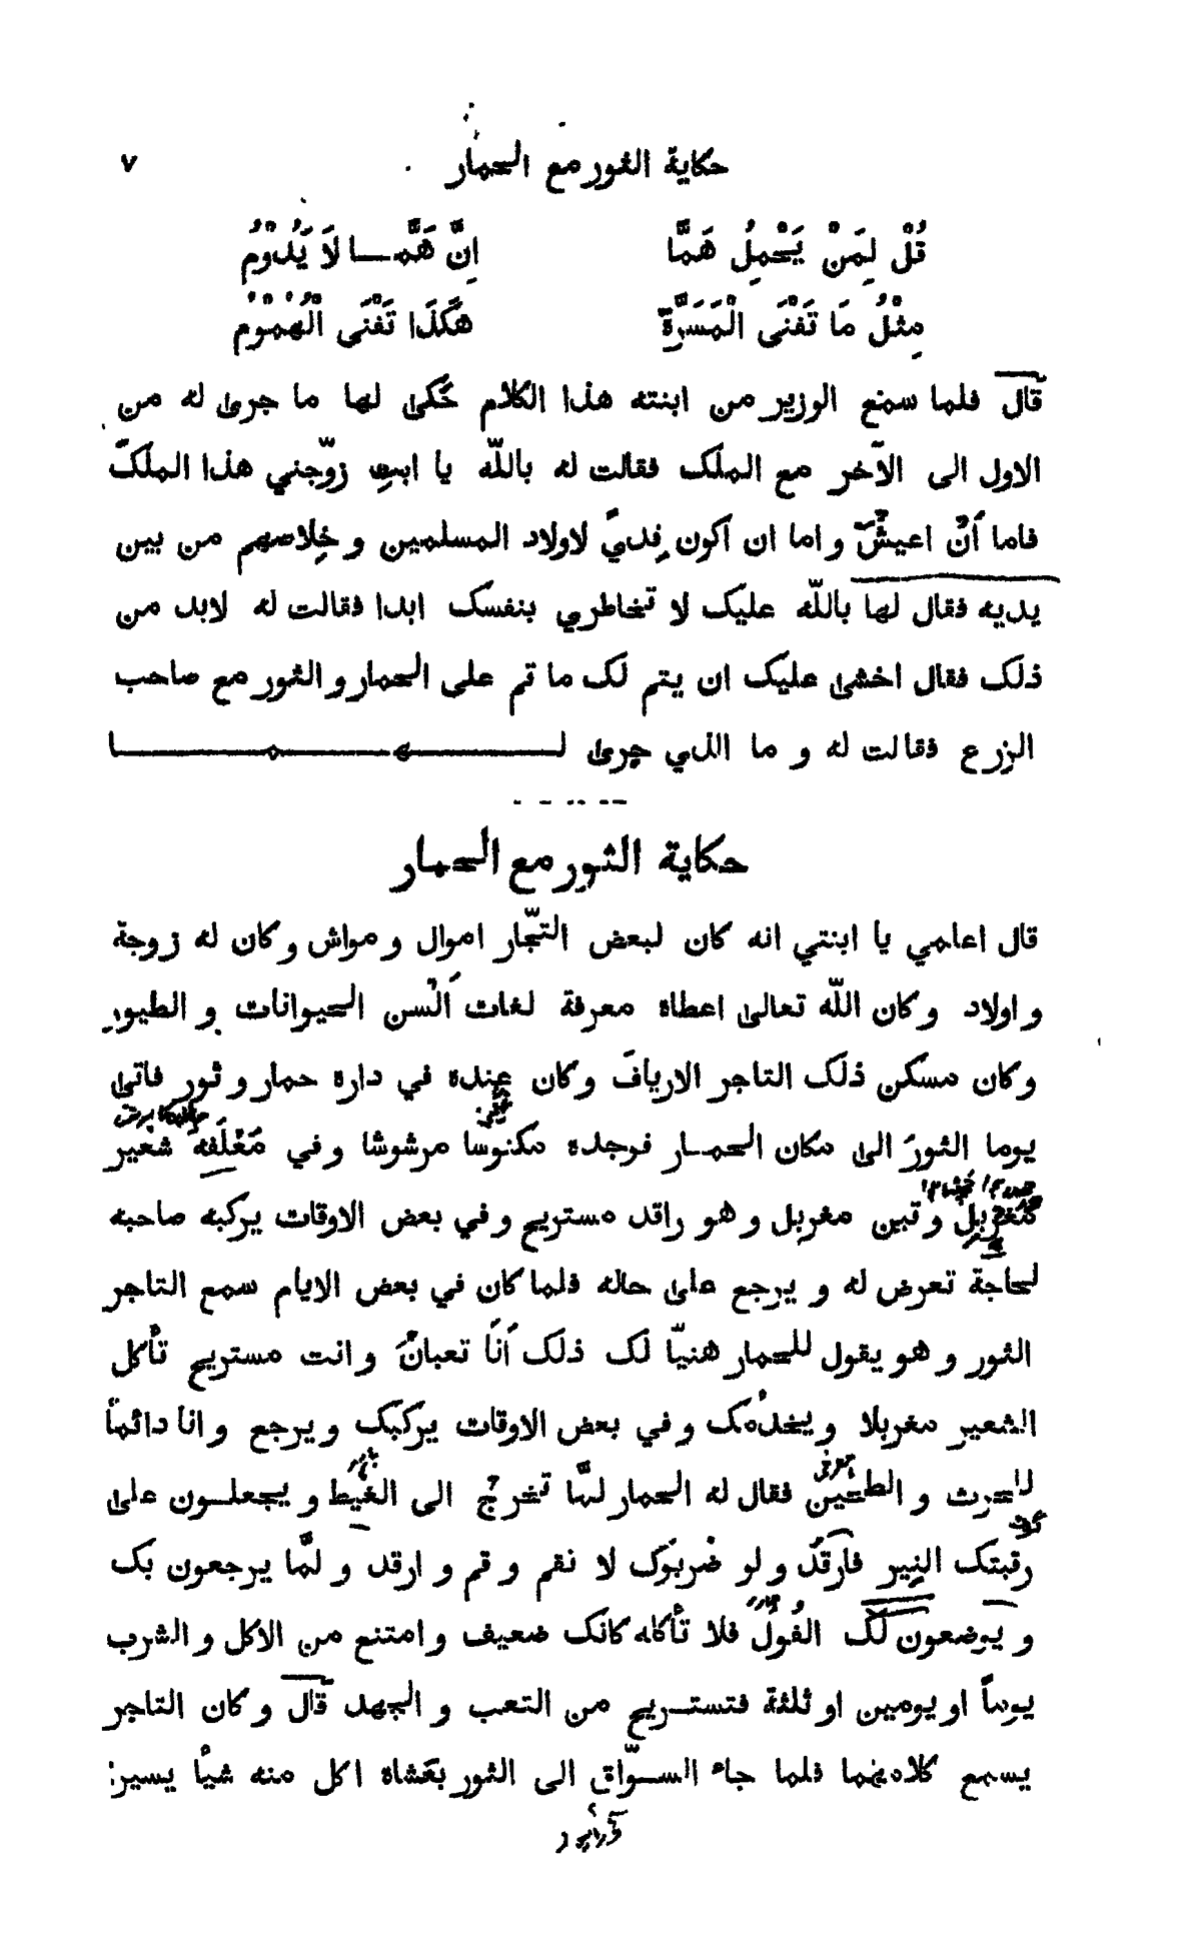 حكاية الثور مع الحمار ٧
قُلْ لِمَنْ يَحْمِلُ هَمًّا اِنَّ هَمًّا لَا يَدُوْمُ
مِثْلُ مَا تَفْنَى الْمَسَرَّة هٰكَذَا تَفْنَى الْهُمُوْمُ
قال فلما سمع الوزير من ابنته هذا الكلام حكى لها ما جرى له من
الاول الى الآخر مع الملك فقالت له باللّه يا ابتِ زوّجني هذا الملك
فاما أنْ اعيش واما ان اكون فدىً لاولاد المسلمين و خلاصهم من بين
يديه فقال لها باللّه عليك لا تخاطري بنفسك ابدا فقالت له لابد من
ذلك فقال اخشى عليك ان يتم لك ما تم على الحمار و الثور مع صاحب
الزرع فقالت له و ما الذي جرى لهما
حكاية الثور مع الحمار
قال اعلمي يا ابنتي انه كان لبعض التجّار اموال و مواش وكان له زوجة
و اولاد وكان اللّه تعالى اعطاه معرفة لغات اَلْسن الحيوانات و الطيور
وكان مسكن ذلك التاجر الارياف وكان عنده في داره حمار و ثور فاتى
يوما الثورَ الى مكان الحمار فوجده مكنوسا مرشوشا و في مَعْلَفه شعير
مغربل و تبن مغربل و هو راقد مستريح و في بعض الاوقات يركبه صاحبه
لحاجة تعرض له و يرجع على حاله فلما كان في بعض الايام سمع التاجر
الثور و هو يقول للحمار هنيّا لك ذلك اَنَا تعبان و انت مستريح تأكل
الشعير مغربلا و يخدُمك و في بعض الاوقات يركبك و يرجع و انا دائماً
للحرث و الطحين فقال له الحمار لمّا تخرج الى الغيط و يجعلون على
رقبتك النير فارقد و لو ضربوك لا نقم و قم و ارقد و لمّا يرجعون بك
و يوضعون لك الفُول فلا تأكله كانك ضعيف و امتنع من الاكل و الشرب
يوماً او يومين او ثلثة فتستريح من التعب و الجهد قال وكان التاجر
يسمع كلامهما فلما جاء السوّاق الى الثور بعَشاه اكل منه شيأ يسير